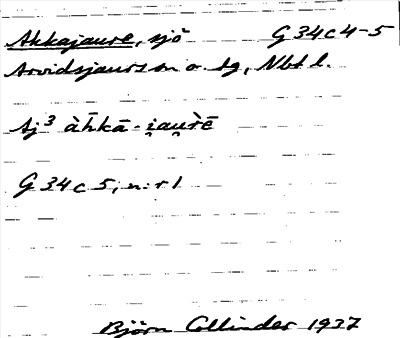 Akkajaure, sjö G 34c 4-5
Arvidsjaurs sn o. tg, Nbt l.
Aj³ àh̄kā-i̯au̯rē
G 34c 5, n:r 1
Björn Collinder 1937